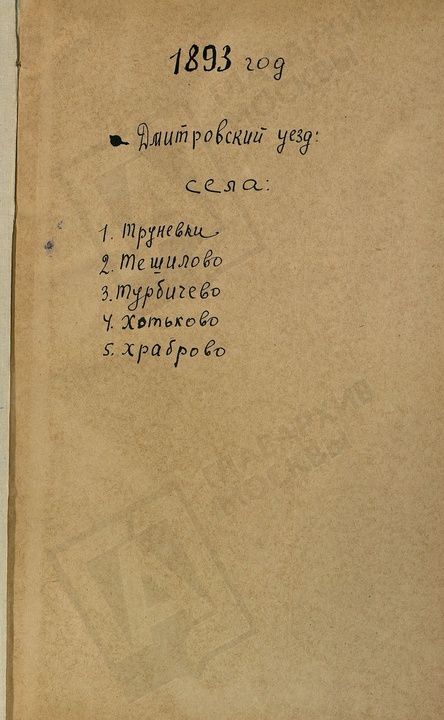 1893 год
Дмитровский уезд:
села:
1. Труневки
2. Тешилово
3. Турбичево
4. Хотьково
5. Храброво
ГЛАВАРХИВ
МОСКВЫ